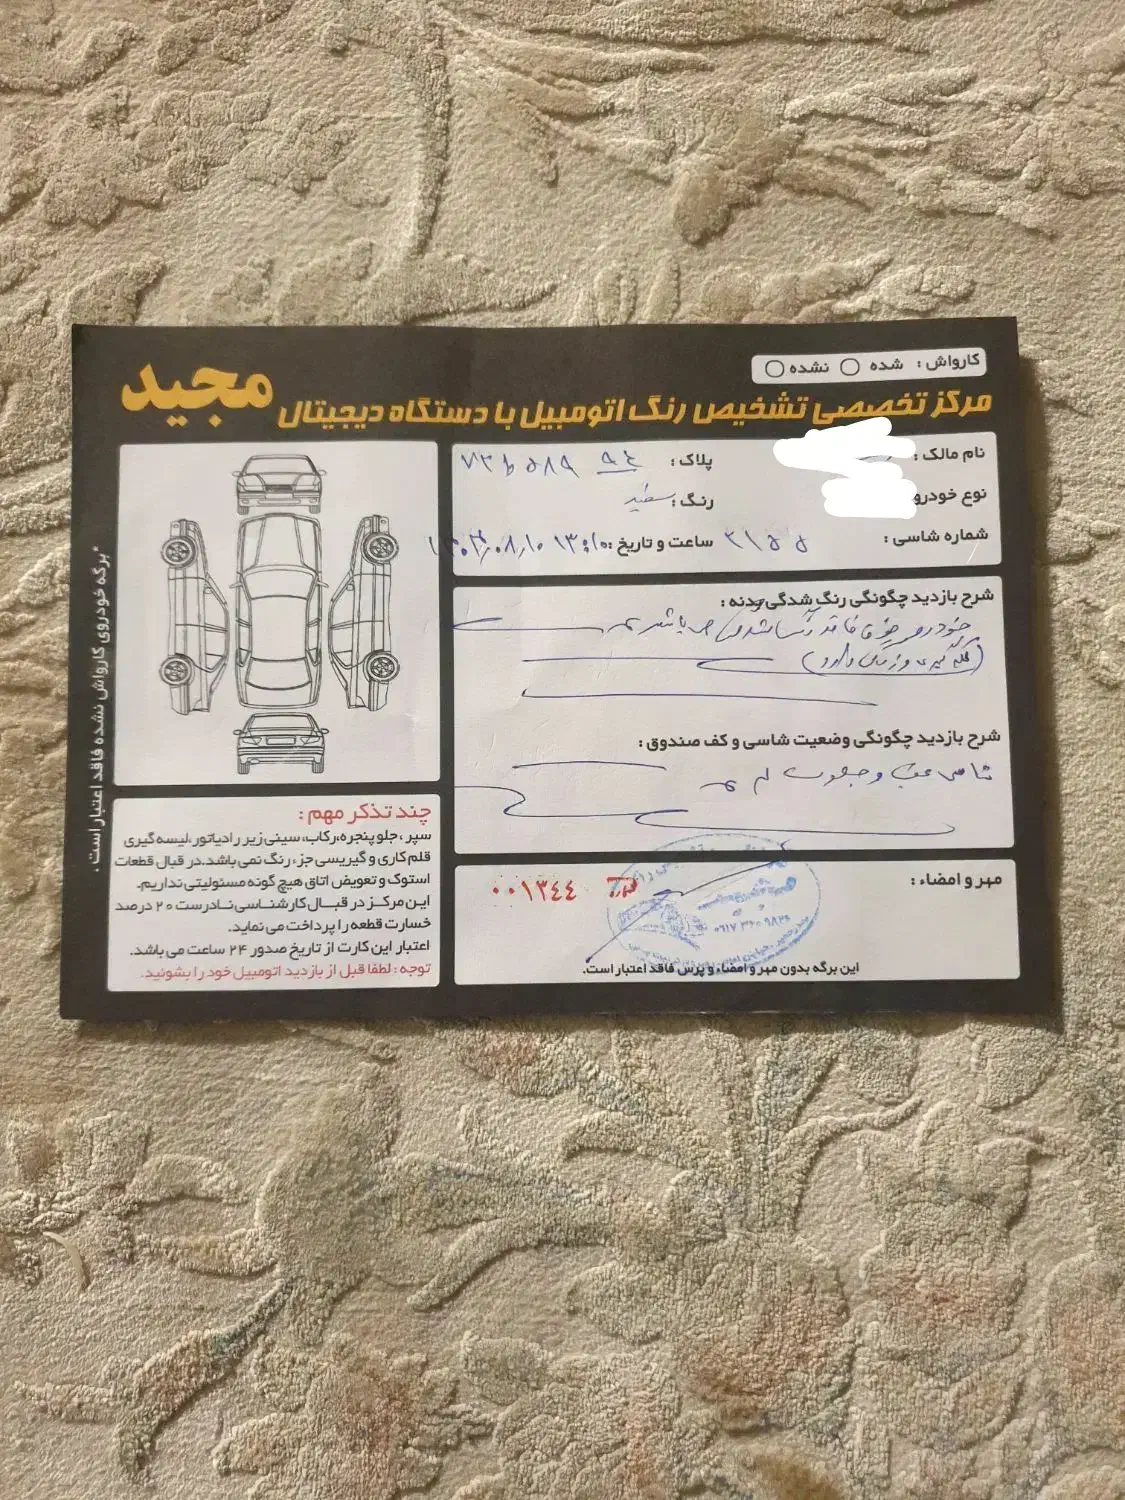 کارواش : شده ○ نشده ○
مرکز تخصصی تشخیص رنگ اتومبیل با دستگاه دیجیتال مجید
نام مالک :
پلاک :
نوع خودرو
رنگ : سفید
شماره شاسی : ۳۱۵۵
ساعت و تاریخ : ۱۳:۱۰
شرح بازدید چگونگی رنگ شدگی بدنه :
خودرو فوق فاقد رنگ شدگی می باشد
شرح بازدید چگونگی وضعیت شاسی و کف صندوق :
شاسی عقب و جلو سالم
مهر و امضاء :
۰۰۱۳۴۴
این برگه بدون مهر و امضاء و پرس فاقد اعتبار است.
*برگه خودروی کارواش نشده فاقد اعتبار است .
چند تذکر مهم :
سپر ، جلو پنجره،رکاب، سینی زیر رادیاتور ،لیسه گیری
قلم کاری و گیریسی جز، رنگ نمی باشد.در قبال قطعات
استوک و تعویض اتاق هیچ گونه مسئولیتی نداریم.
این مرکز در قبال کارشناسی نادرست ۲۰ درصد
خسارت قطعه را پرداخت می نماید.
اعتبار این کارت از تاریخ صدور ۲۴ ساعت می باشد.
توجه : لطفا قبل از بازدید اتومبیل خود را بشوئید.